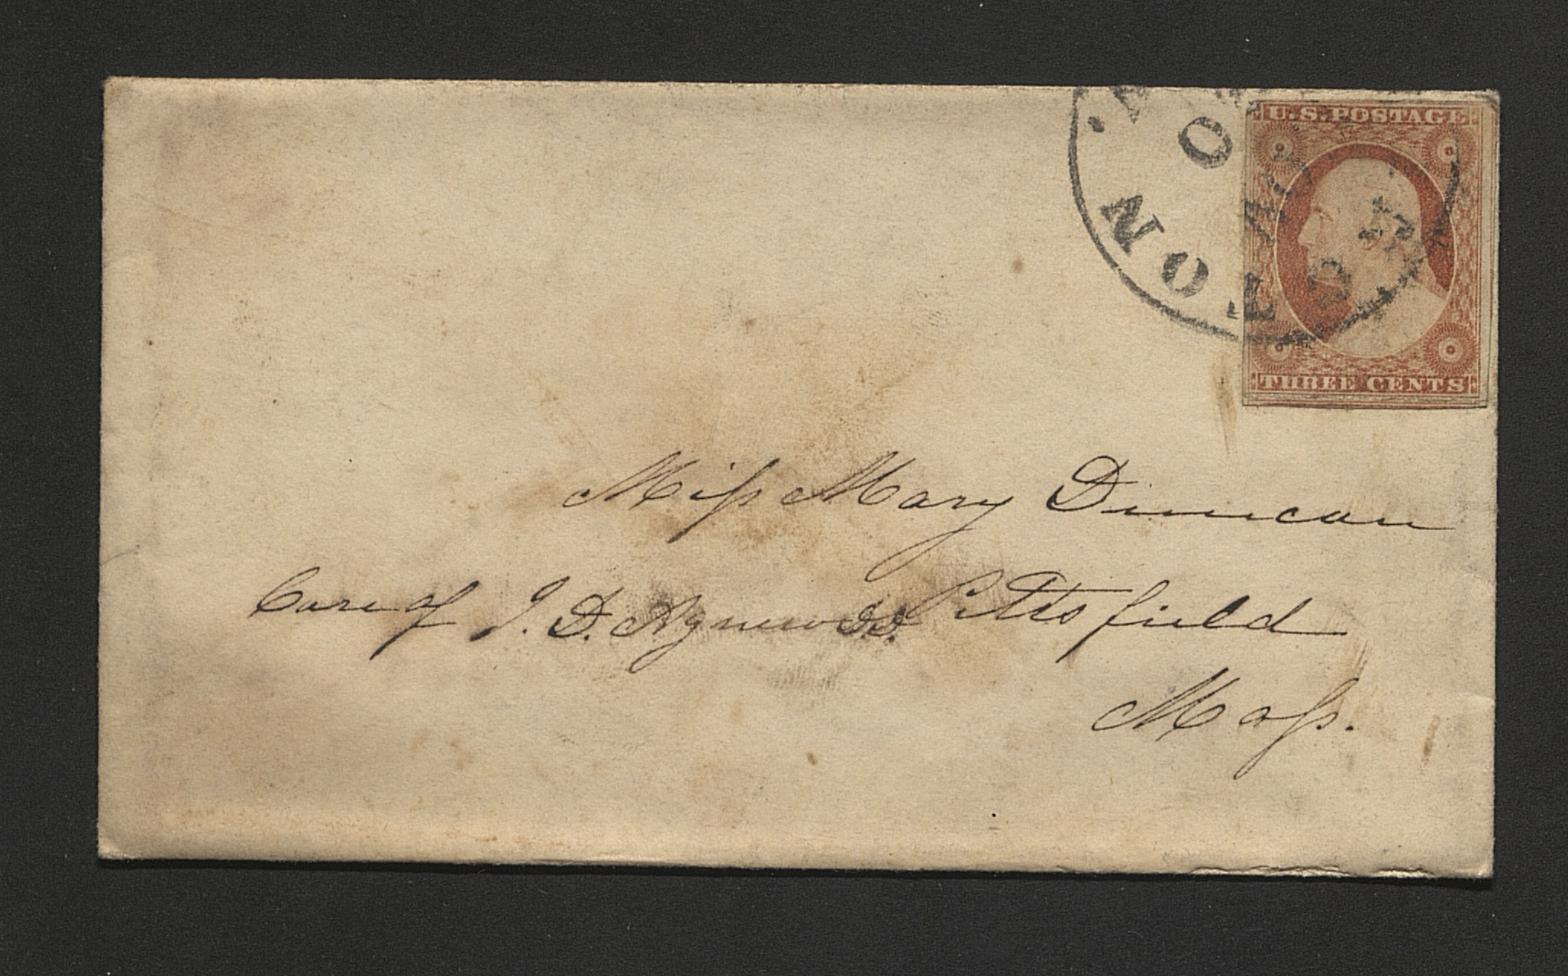 U.S. POSTAGE
THREE CENTS
Miss Mary Duncan
Care of J. D. Agnew Pittsfield
Mass.